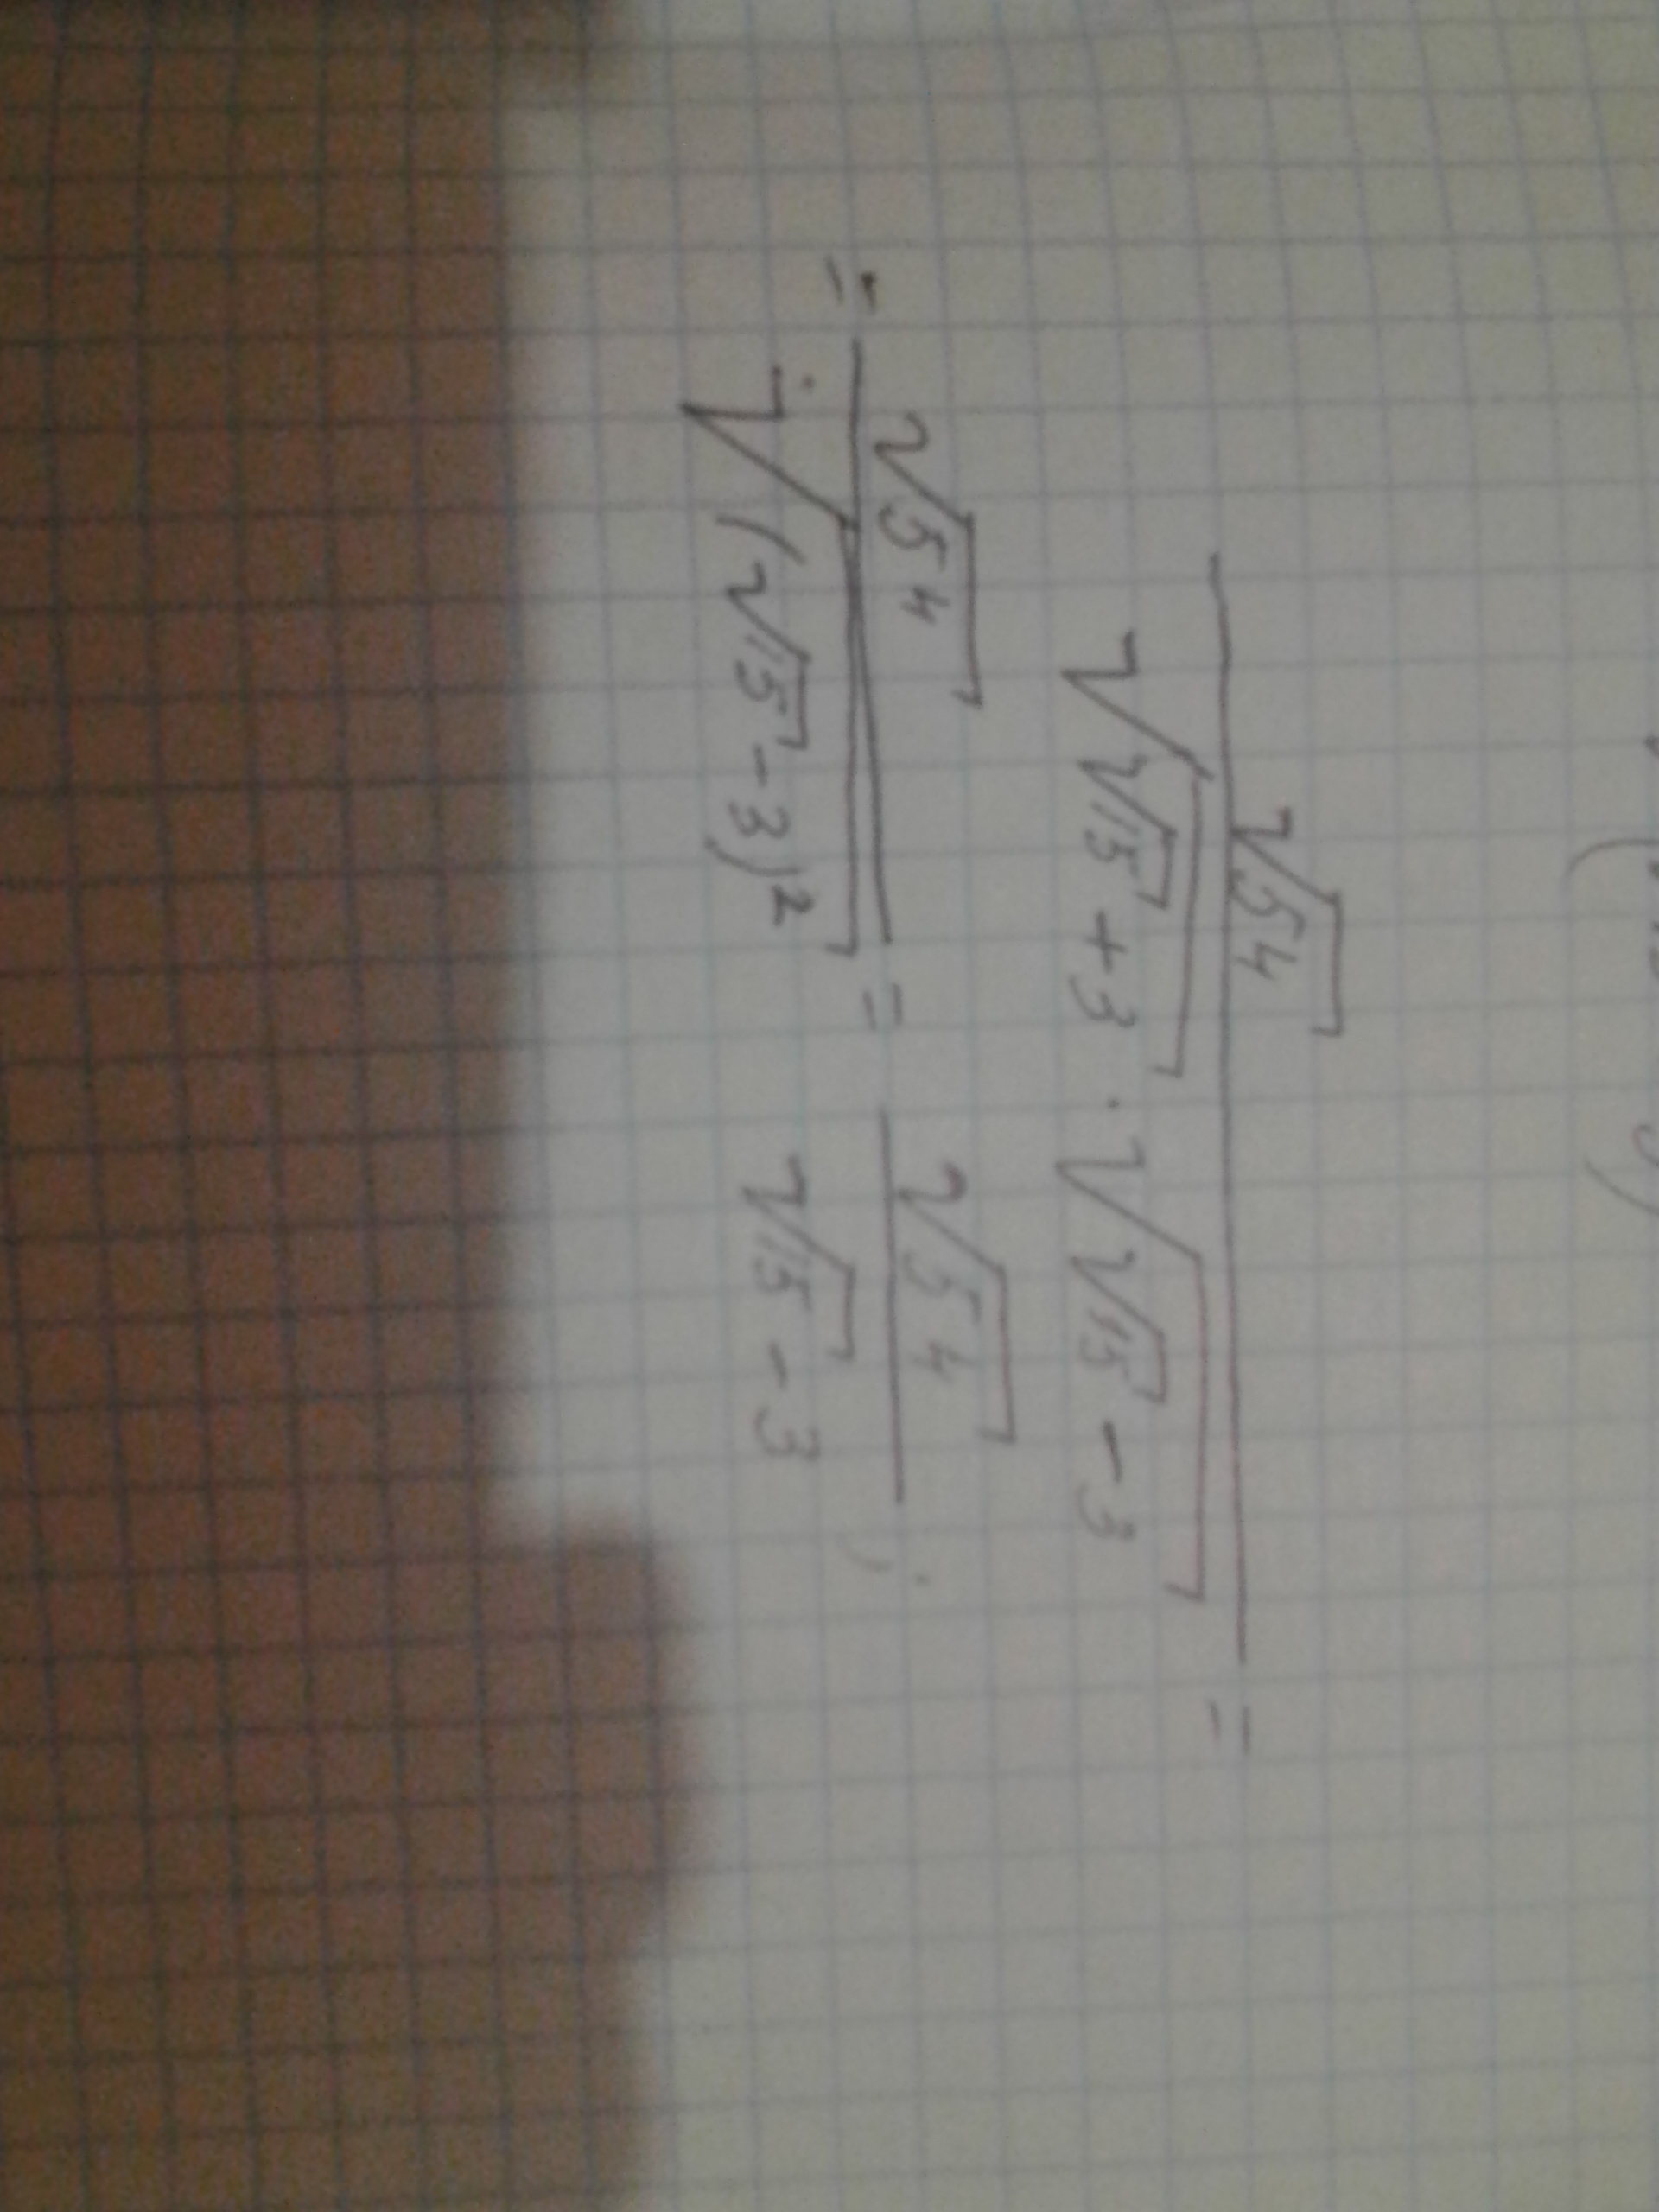 √54 / (√(√15 + 3) · √(√15 - 3)) =
= √54 / √((√15 - 3)²) = √54 / (√15 - 3) ;